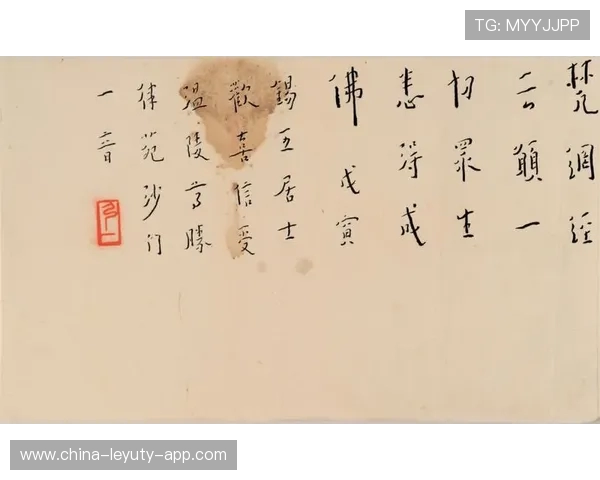 TG: MYYJJPP
梵網經
云願一
切眾生
悉得成
佛 戊寅
錫五居士
歡喜信受
溫陵尊勝
律苑沙門
一音
www.china-leyuty-app.com